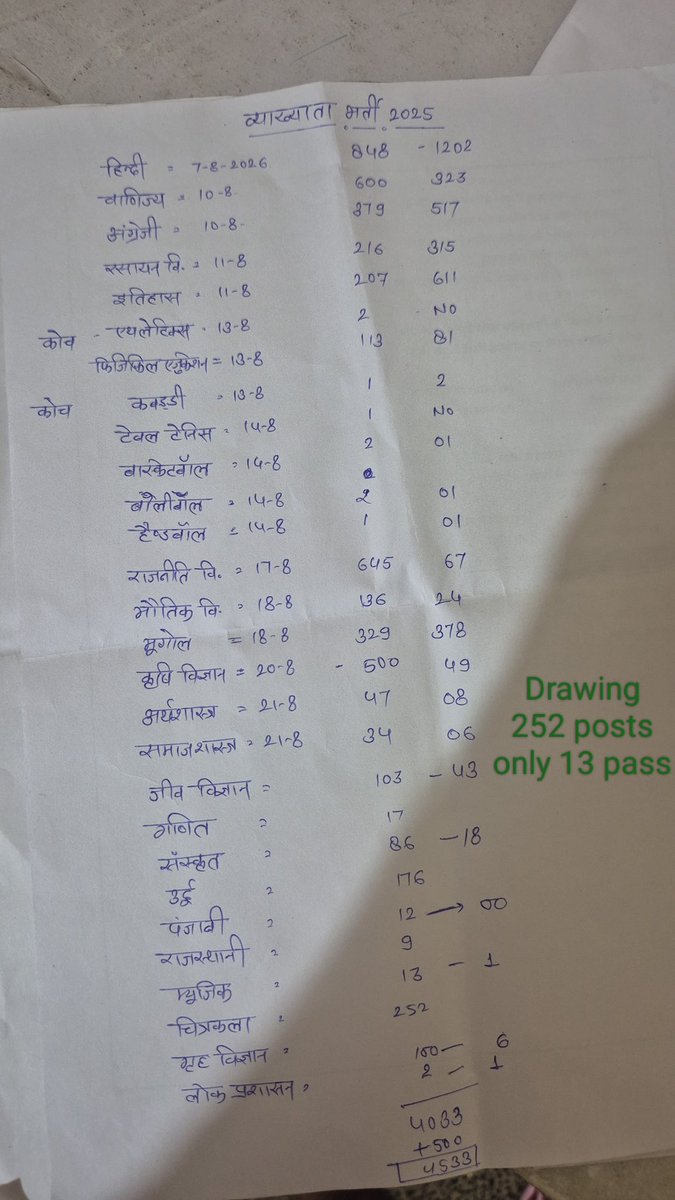 व्याख्याता भर्ती 2025
हिन्दी = 7-8-2026 848 - 1202
वाणिज्य = 10-8- 600 323
अंग्रेजी = 10-8- 379 517
रसायन वि. = 11-8 216 315
इतिहास = 11-8 207 611
कोच - एथलेटिक्स - 13-8 2 - NO
फिजिकल एजुकेशन = 13-8 113 81
कोच कबड्डी = 13-8 1 2
टेबल टेनिस = 14-8 1 NO
बास्केटबॉल = 14-8 2 01
वॉलीबॉल = 14-8 2 01
हैण्डबॉल = 14-8 1 01
राजनीति वि. = 17-8 645 67
भौतिक वि. = 18-8 136 24
भूगोल = 18-8 329 378
कृषि विज्ञान = 20-8 - 500 49
अर्थशास्त्र = 21-8 47 08
समाजशास्त्र = 21-8 34 06
Drawing
252 posts
only 13 pass
जीव विज्ञान = 103 - 43
गणित = 17
संस्कृत = 86 - 18
उर्दू = 176
पंजाबी = 12 → 00
राजस्थानी = 9
म्यूजिक = 13 - 1
चित्रकला = 252
गृह विज्ञान = 100 - 6
लोक प्रशासन = 2 - 1
4033
+500
4533